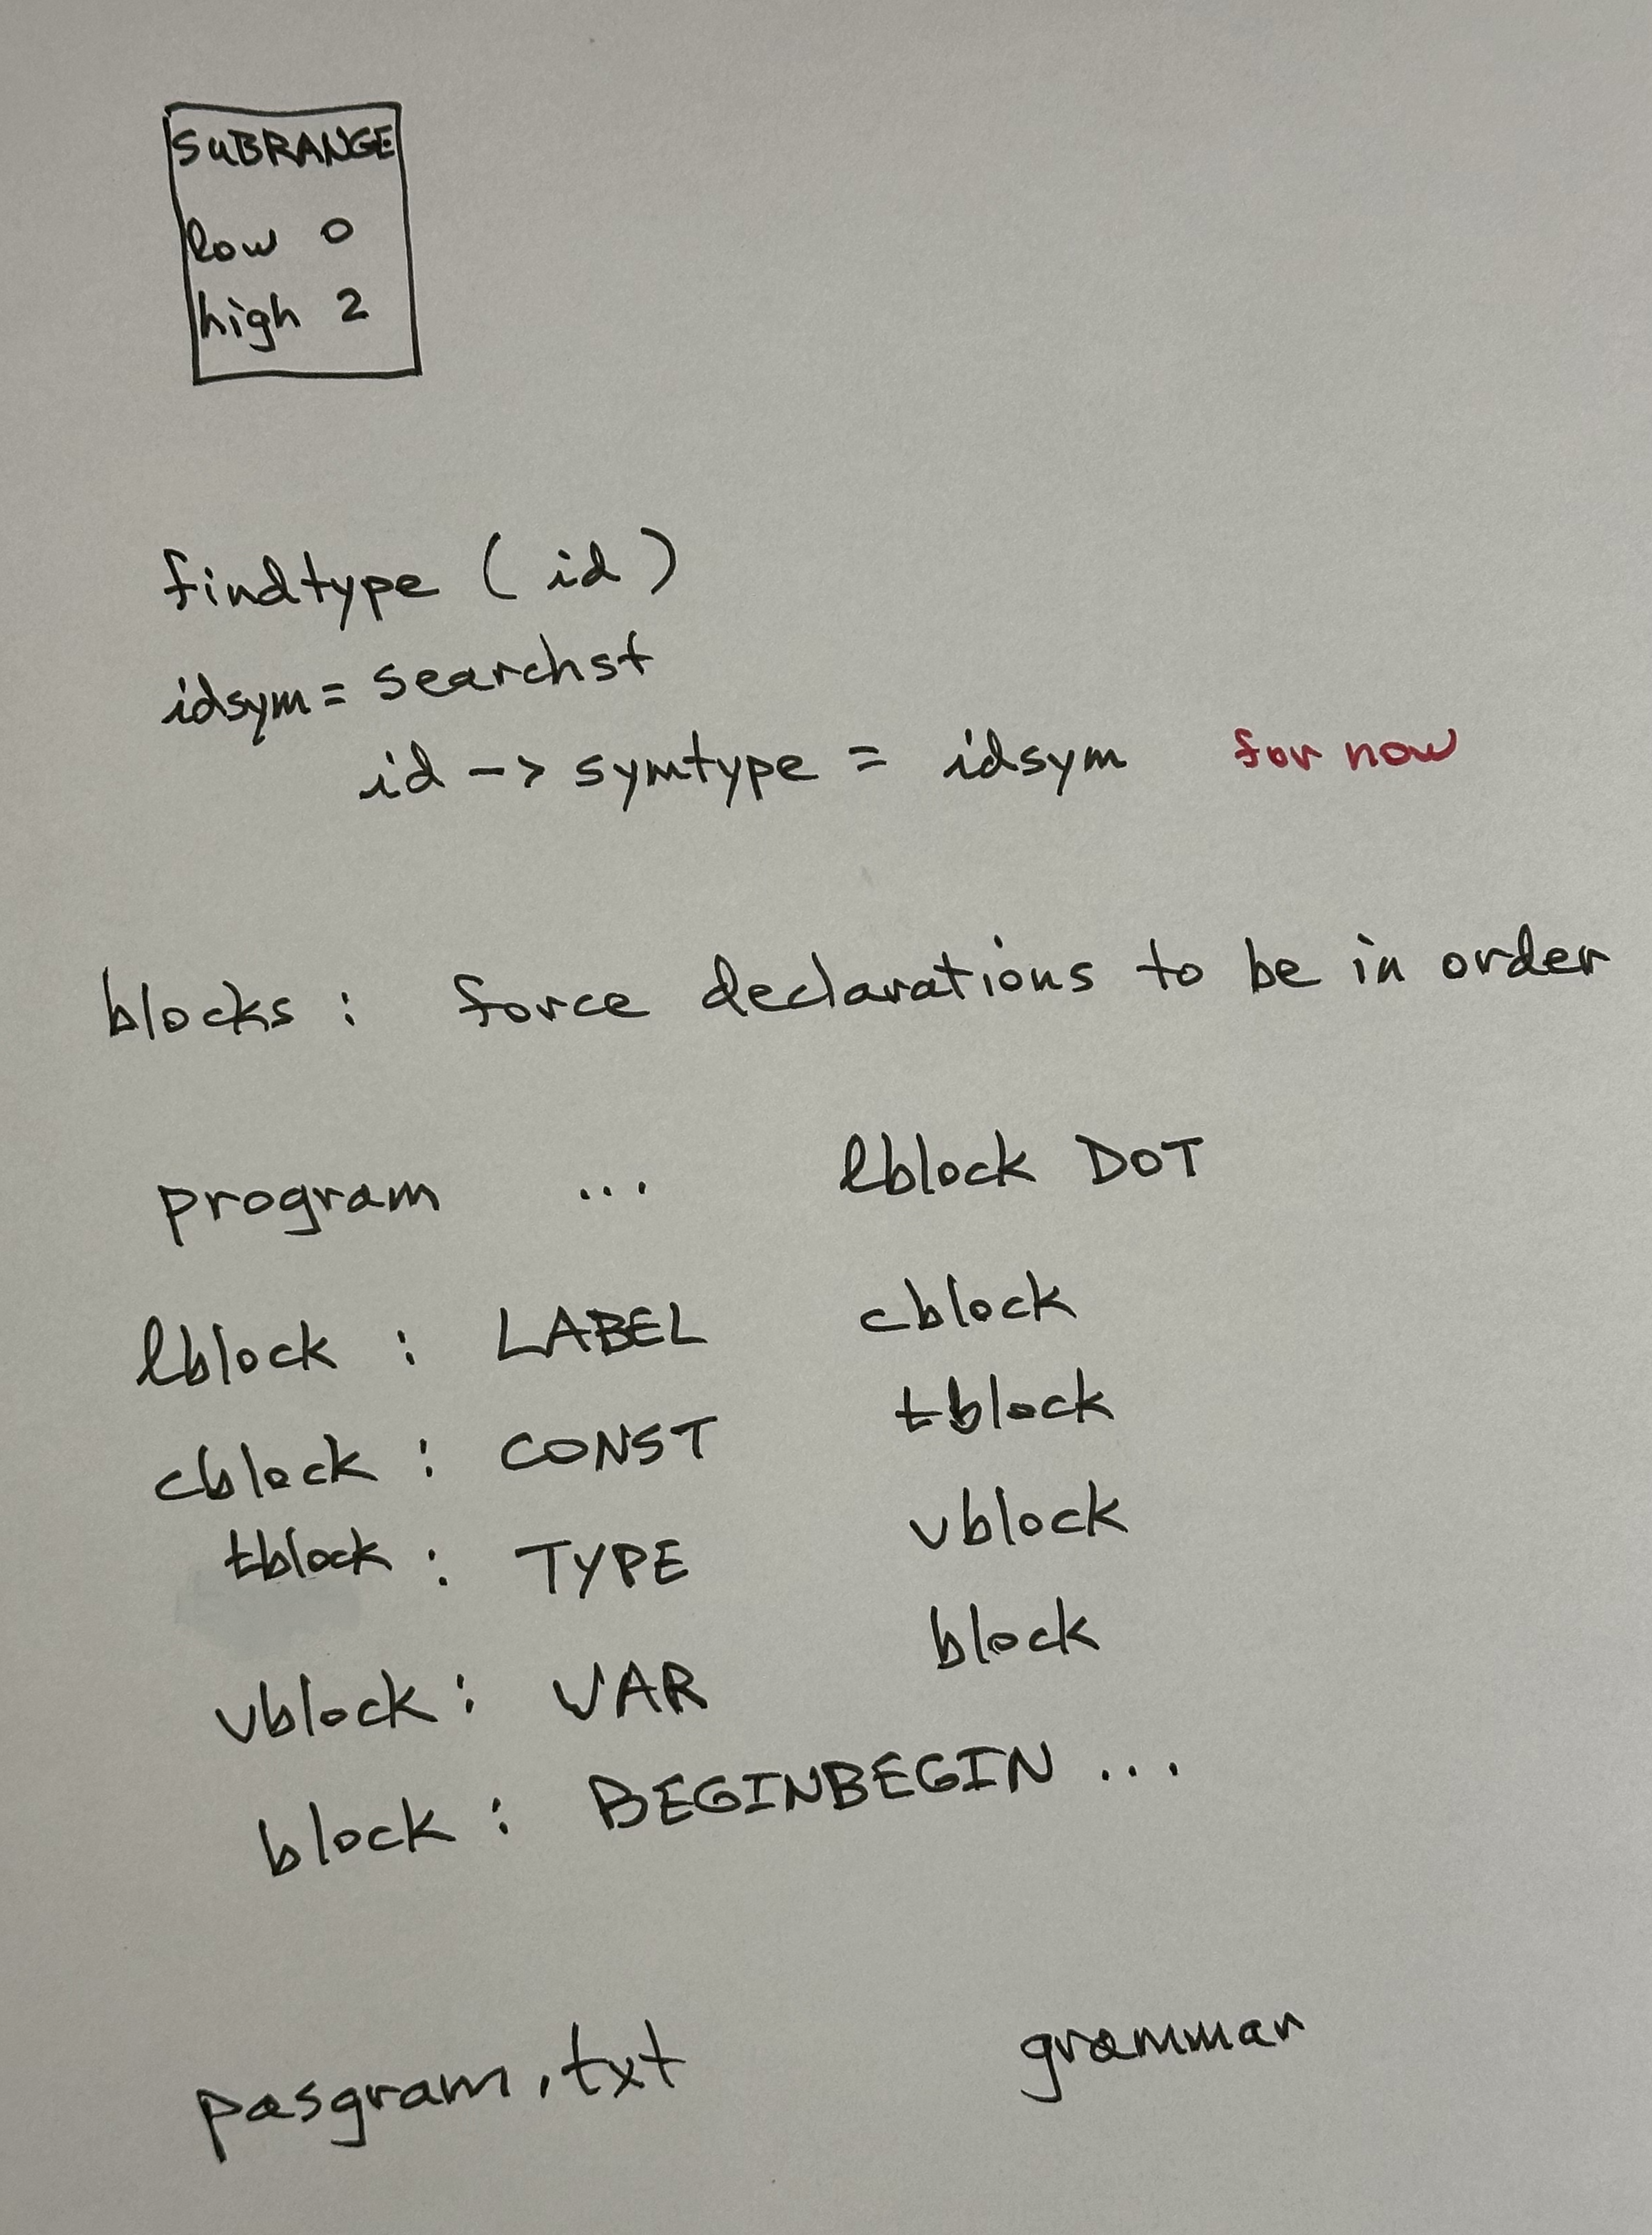 SUBRANGE
low 0
high 2
findtype ( id )
idsym = searchst
id -> symtype = idsym for now
blocks : force declarations to be in order
program ... lblock DOT
lblock : LABEL cblock
cblock : CONST tblock
tblock : TYPE vblock
vblock : VAR block
block : BEGINBEGIN ...
pasgram.txt grammar